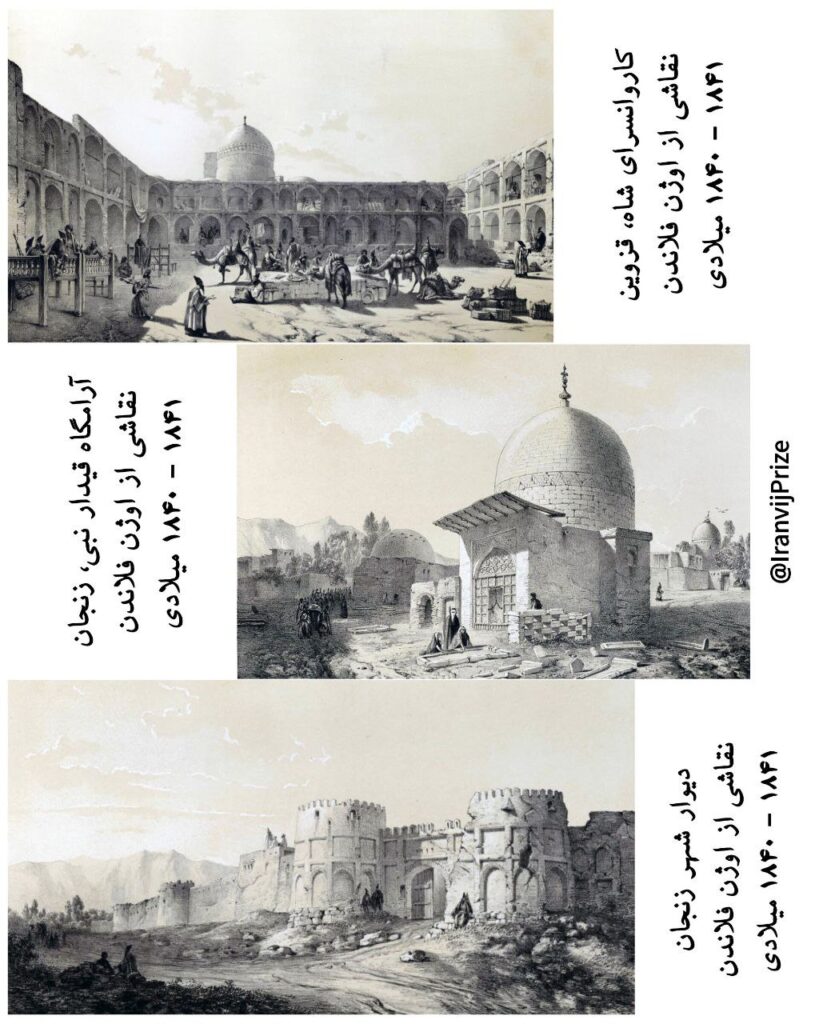 کاروانسرای شاه، قزوین
نقاشی از اوژن فلاندن
۱۸۴۰ - ۱۸۴۱ میلادی
آرامگاه قیدار نبی، زنجان
نقاشی از اوژن فلاندن
۱۸۴۰ - ۱۸۴۱ میلادی
@IranvijPrize
دیوار شهر زنجان
نقاشی از اوژن فلاندن
۱۸۴۰ - ۱۸۴۱ میلادی